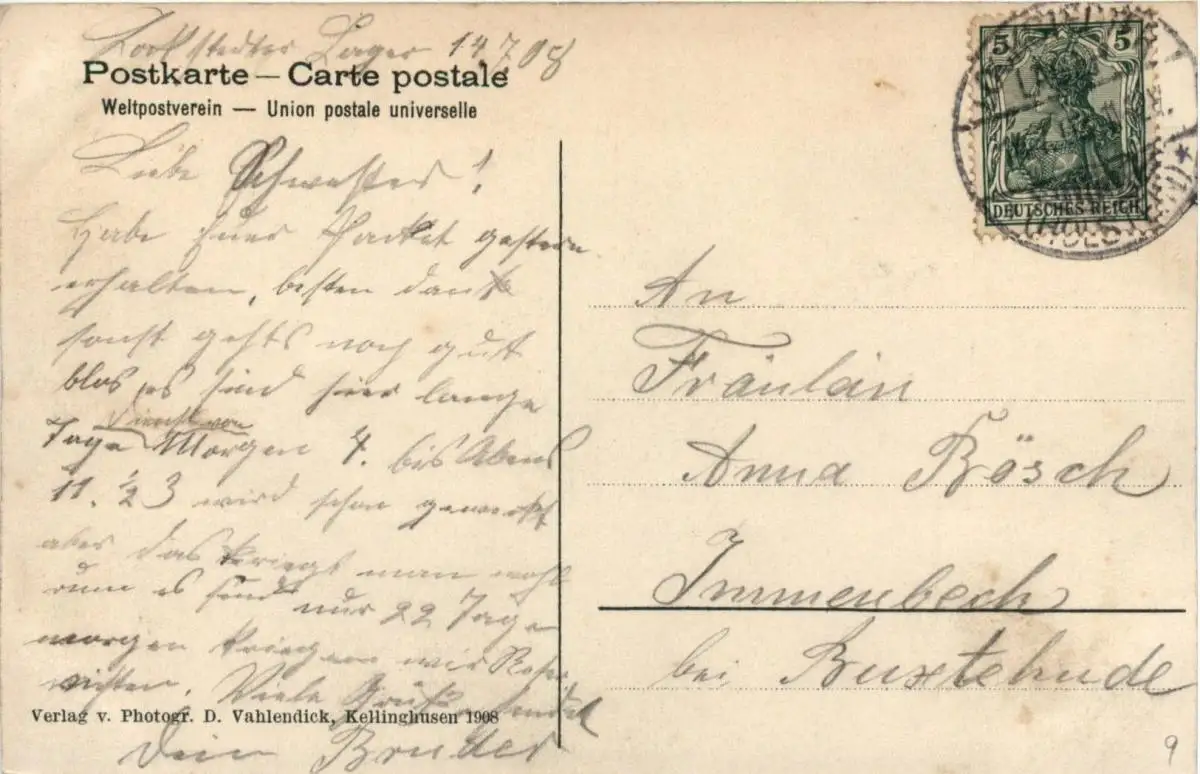 Lockstedter Lager 14 7 08
Postkarte — Carte postale
Weltpostverein — Union postale universelle
Liebe Schwester!
Habe Euer Packet gestern
erhalten, besten dank
sonst gehts noch gut
blos es sind hier lange
Dienst von
Tage Morgen 4. bis Abens
11. ½ 3 wird schon geweckt
aber das kriegt man wohl
rum es sind nur 22 Tage
morgen kriegen wir Reser
visten. Viele Grüße sendet
Dein Bruder
Verlag v. Photogr. D. Vahlendick, Kellinghusen 1908
5 5
DEUTSCHES REICH
An
Fräulän
Anna Bösch
Immenbech
bei Buxtehude
9